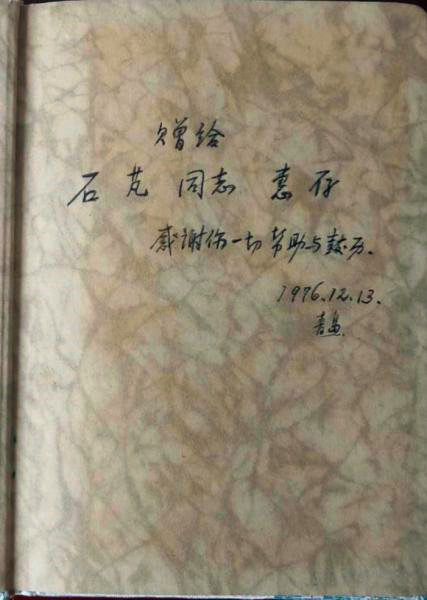 赠给
石芃 同志 惠存
感谢你一切帮助与鼓历.
1976.12.13.
青岛.